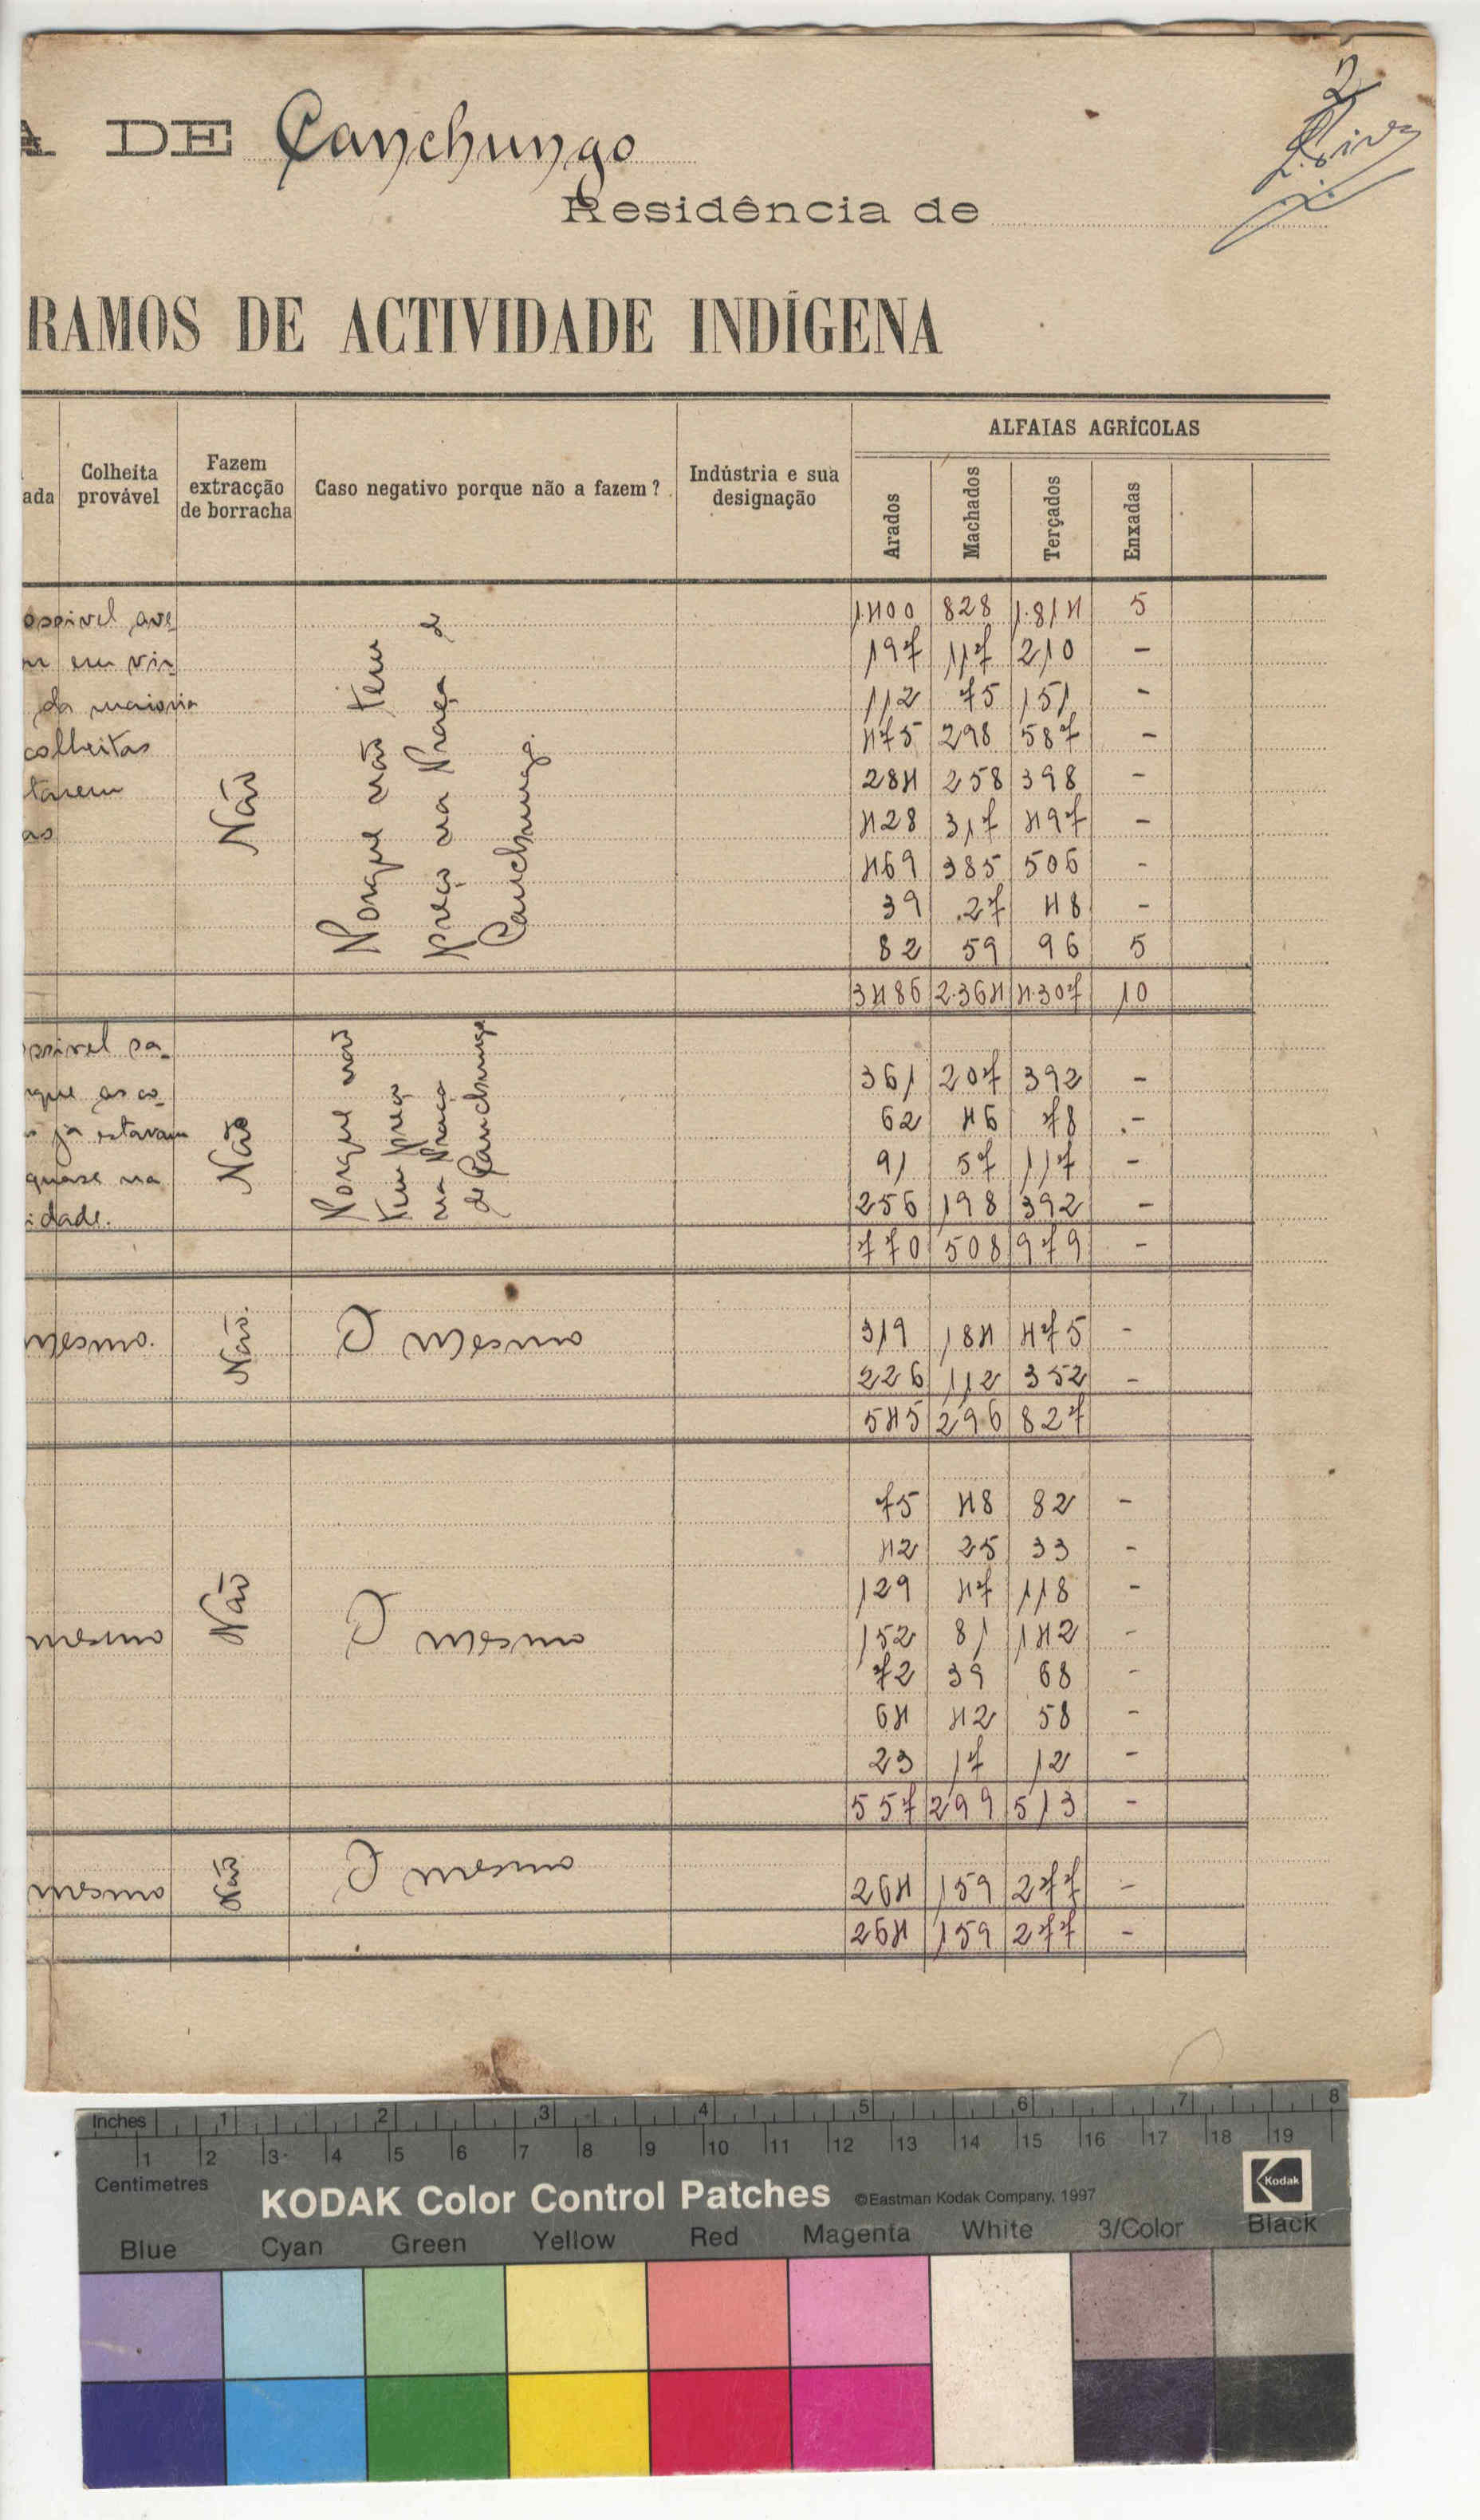 2
A DE Canchungo
Residência de
RAMOS DE ACTIVIDADE INDÍGENA
ada Colheita provável Fazem extracção de borracha Caso negativo porque não a fazem? Indústria e sua designação ALFAIAS AGRÍCOLAS
Arados Machados Terçados Enxadas
ossivel ave-
em vir-
da maioria
colheitas
tarem
as
Não
Porque não tem
preço na Praça de
Canchungo.
1.400 828 1.814 5
197 117 210 -
112 75 151 -
475 298 587 -
284 258 398 -
428 317 497 -
469 385 506 -
39 27 48 -
82 59 96 5
3486 2.364 4.307 10
ossivel sa-
rque as co-
s já estavam
quase na
idade.
Não
Porque não
tem preço
na Praça
de Canchungo
361 207 392 -
62 46 78 -
91 57 117 -
256 198 392 -
770 508 979 -
mesmo. Não. O mesmo
319 184 475 -
226 112 352 -
545 296 827
mesmo Não O mesmo
75 48 82 -
42 25 33 -
129 47 118 -
152 81 142 -
72 39 68 -
64 42 58 -
23 17 12 -
557 299 513 -
mesmo Não O mesmo
264 159 277 -
264 159 277 -
Inches 1 2 3 4 5 6 7 8
1 2 3 4 5 6 7 8 9 10 11 12 13 14 15 16 17 18 19
Centimetres
KODAK Color Control Patches ©Eastman Kodak Company, 1997 Kodak
Blue Cyan Green Yellow Red Magenta White 3/Color Black